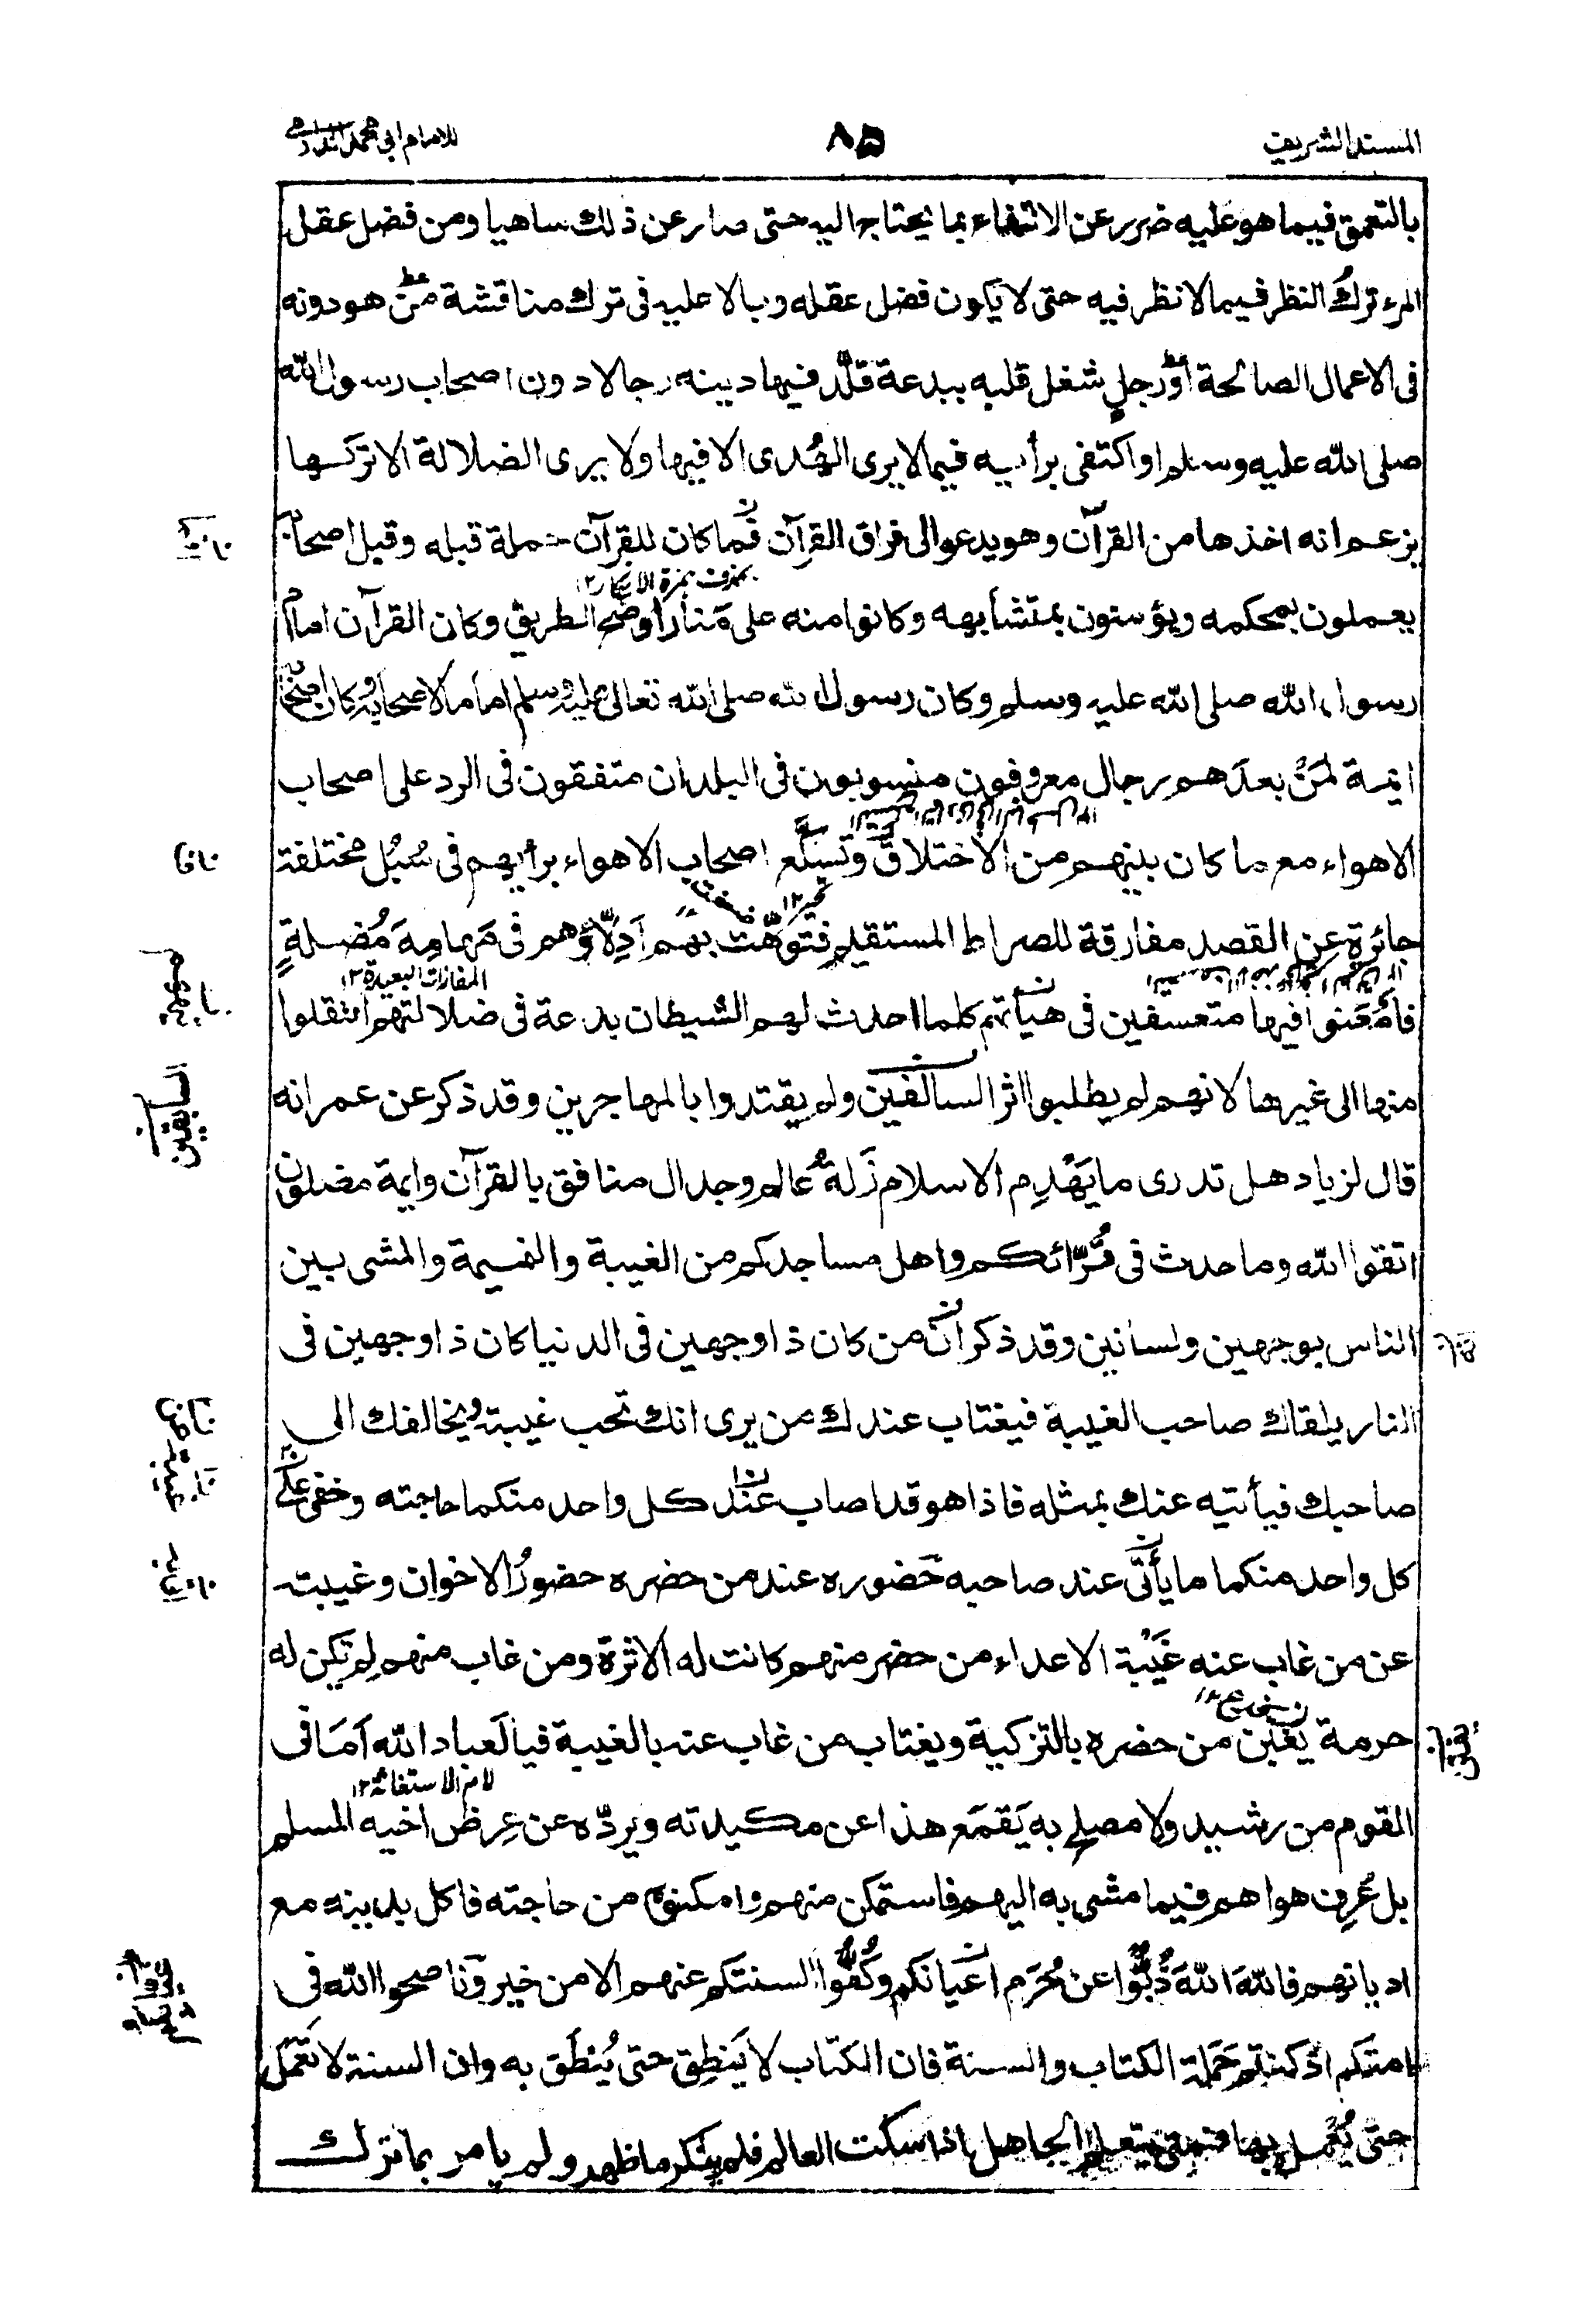 المسند الشريف
٨٥
للامام ابي محمد الدارمي
بالتعمق فيما هو عليه ضرر عن الانتفاء بما يحتاج اليه حتى صار عن ذلك ساهيا ومن فضل عقل
المرء ترك النظر فيما لا نظر فيه حتى لا يكون فضل عقله وبالا عليه في ترك مناقشة من هو دونه
في الاعمال الصالحة او رجلٍ شغل قلبه ببدعة قلّد فيها دينه رجالا دون اصحاب رسول الله
صلى الله عليه وسلم او اكتفى برأيه فيما لا يرى الهُدى الا فيها ولا يرى الضلالة الا تركها
يزعم انه اخذها من القرآن وهو يدعو الى فراق القرآن فما كان للقرآن حملة قبله وقبل اصحابه
بحذف همزة الانكار ١٢
يعملون بمحكمه ويؤمنون بمتشابهه وكانوا منه على مَنار اوضح الطريق وكان القرآن امام
رسول الله صلى الله عليه وسلم وكان رسول الله صلى الله تعالى عليه وسلم اماما لاصحابه وكان اصحابه
ايمة لمَنْ بعدَهم رجال معروفون منسوبون في البلدان متفقون في الرد على اصحاب
الاهواء مع ما كان بينهم من الاختلاف وتسكّع اصحاب الاهواء برأيهم في سُبُل مختلفة
جائرة عن القصد مفارقة للصراط المستقيم فتوّهت بهم ادِلّاؤهم في مَهامِهَ مُضِلةٍ
المفازات البعيدة ١٢
فامعنوا فيها متعسفين في هيأتهم كلما احدث لهم الشيطان بدعة في ضلالتهم انتقلوا
منها الى غيرها لانهم لم يطلبوا اثر السالفين ولم يقتدوا بالمهاجرين وقد ذكر عن عمر انه
السابقين
قال لزياد هل تدرى ما يَهْدِم الاسلام زَلةُ عالم وجدال منافق بالقرآن وايمة مضلون
اتقوا الله وما حدث في قُرّائكم واهل مساجدكم من الغيبة والنميمة والمشى بين
الناس بوجهين ولسانين وقد ذكر ان من كان ذا وجهين في الدنيا كان ذا وجهين في
النار يلقاك صاحب الغيبة فيغتاب عندك من يرى انك تحب غيبته ويخالفك الى
صاحبك فيأتيه عنك بمثله فاذا هو قد اصاب عند كل واحد منكما حاجته وخفى على
كل واحد منكما ما يأتى عند صاحبه حَضوره عند من حضره حضورُ الاخوان وغيبته
عن من غاب عنه غَيْبة الاعداء من حضر منهم كانت له الاثرة ومن غاب منهم لم تكن له
حرمة يفتن من حضره بالتزكية ويغتاب من غاب عنه بالغيبة فيالَعباد الله اَمَا في
لام الاستغاثة ١٢
القوم من رشيد ولا مصلح به يَقمَع هذا عن مكيدته ويردّه عن عِرض اخيه المسلم
بل عُرِف هواهم فيما مشى به اليهم فاستمكن منهم وامكنوه من حاجته فاكل بدينه مع
اديانهم فاللهَ اللهَ ذُبُّوا عن حُرَم اعيانكم وكُفُّوا السنتكم عنهم الا من خير وناصحوا الله في
امتكم اذ كنتم حَمَلة الكتاب والسنة فان الكتاب لا يَنطِق حتى يُنطَق به وان السنة لا تَعْمَل
حتى يُعْمل بها فمتى يتعلم الجاهل اذا سكت العالم فلم ينكر ما ظهر ولم يامر بما ترك